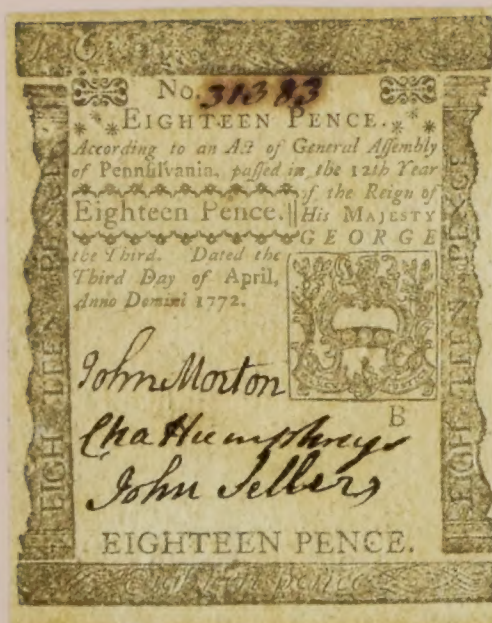 No. 31383
EIGHTEEN PENCE.
According to an Act of General Assembly
of Pennsilvania, passed in the 12th Year
of the Reign of
Eighteen Pence.
His MAJESTY
GEORGE
the Third. Dated the
Third Day of April,
Anno Domini 1772.
John Morton
B
Cha Humphreys
John Sellers
EIGHTEEN PENCE.
Eighteen pence
EIGHTEEN PENCE
EIGHTEEN PENCE